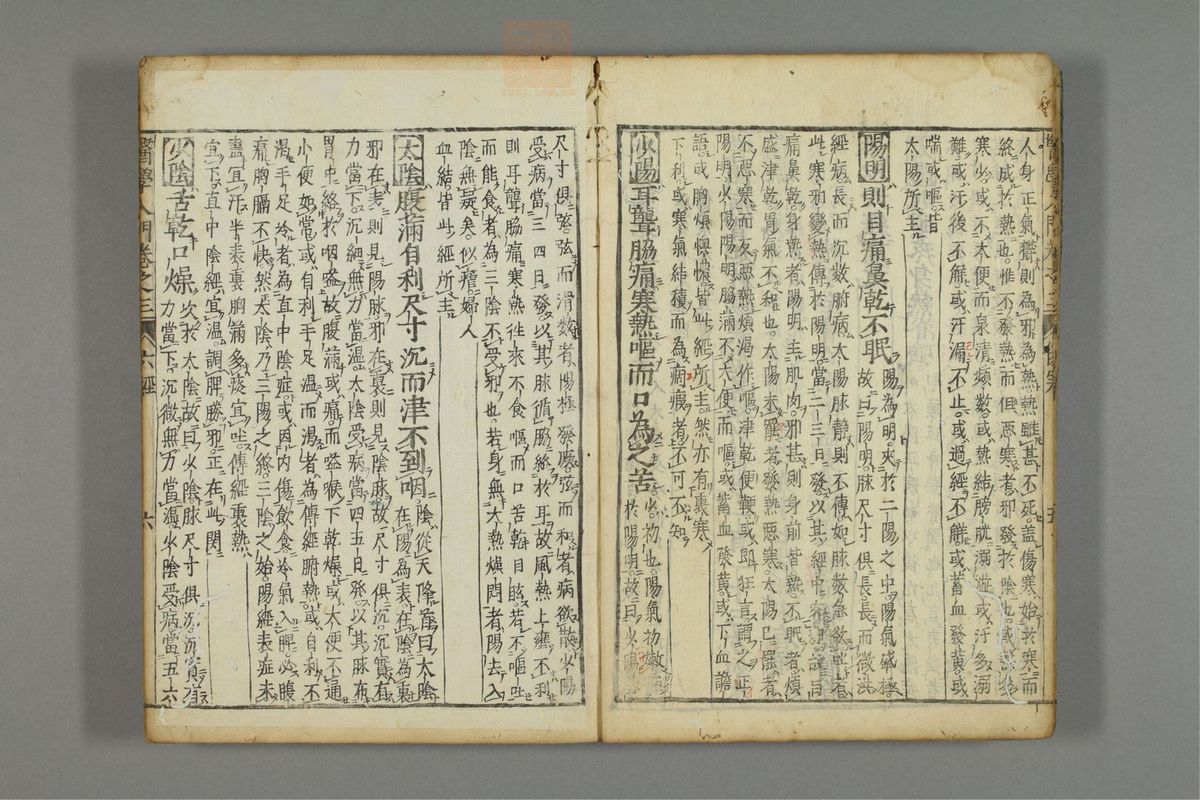 人身正氣鬱則為邪為熱熱雖甚不死蓋傷寒始於寒而
終成於熱也惟不發熱而但惡寒者邪發於陰也或
寒少或不大便而泉清頻數或熱結膀胱溺澁或汗多溺
難或汗後不解或汗漏不止或過經不解或蓄血發黃或
喘或嘔皆
太陽所主
陽明則目痛鼻乾不眠陽為明夾於二陽之中陽氣盛極
故曰陽明脉尺寸俱長長而微洪
經病長而沉數腑病太陽脉靜則不傳如脉數急欲吐者
此寒邪變熱傳於陽明當二三日發以其經中客目
痛鼻乾身熱者陽明主肌肉邪甚則身前皆熱不眠者煩
盛津乾胃氣不和也太陽未罷者發熱惡寒太陽已罷者
不惡寒而反惡熱煩渴作嘔津乾便鞕或即狂言謂之正
陽明少陽陽明脇滿不大便而嘔或蓄血發黃或下血譫
語或胸煩懊憹皆此經所主然亦有裏寒
下利或寒氣結積而為痼瘕者不可不知
少陽耳聾脇痛寒熱嘔而口為之苦少初也陽氣初嫩
於陽明故曰少陽
尺寸俱弦弦而滑數者陽極發厥弦而和者病欲散少陽
受病當三四日發以其脉循脇絡於耳故風熱上壅不利
則耳聾脇痛寒熱徃來不食嘔而口苦乾目眩若不嘔吐
而能食者為三陰不受邪也若身無大熱燥悶者陽去入
陰無疑矣似瘧婦人
血結皆此經所主
太陰腹滿自利尺寸沉而津不到咽陰從天降首曰太陰
在陽為表在陰為裏
邪在表則見陽脉邪在裏則見陰脉故尺寸俱沉沉實有
力當下沉細無力當溫太陰受病當四五日發以其脉布
胃中絡於咽嗌故腹滿或痛而嗌喉下乾燥或大便不通
小便如常或自利手足溫而渴者為傳經腑熱或自利不
渴手足冷者為直中陰症或因內傷飲食冷氣入脾必腹
痛胸膈不快然太陰乃三陽之終三陰之始陽經表症未
盡宜汗半表裏胸滿多痰宜吐傳經裏熱
宜下直中陰經宜溫調脾勝邪正在此関
少陰舌乾口燥次於太陰故曰少陰脉尺寸俱沉沉實有
力當下沉微無力當溫少陰受病當五六
醫學入門卷之三
六經
六